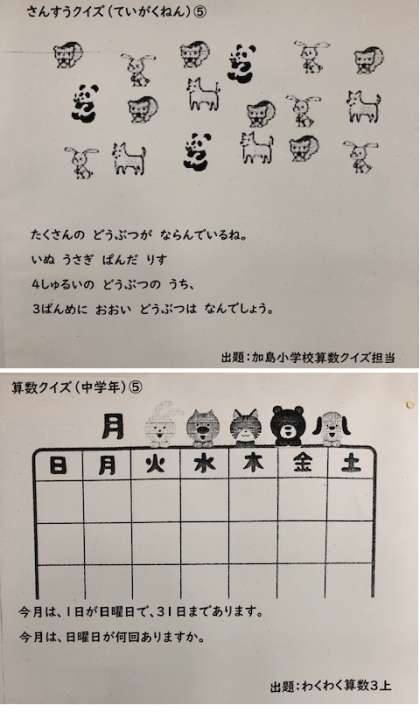 さんすうクイズ(ていがくねん)⑤
たくさんの どうぶつが ならんでいるね。
いぬ うさぎ ぱんだ りす
4しゅるいの どうぶつの うち、
3ばんめに おおい どうぶつは なんでしょう。
出題:加島小学校算数クイズ担当
算数クイズ(中学年)⑤
月
日 月 火 水 木 金 土
今月は、1日が日曜日で、31日まであります。
今月は、日曜日が何回ありますか。
出題:わくわく算数3上